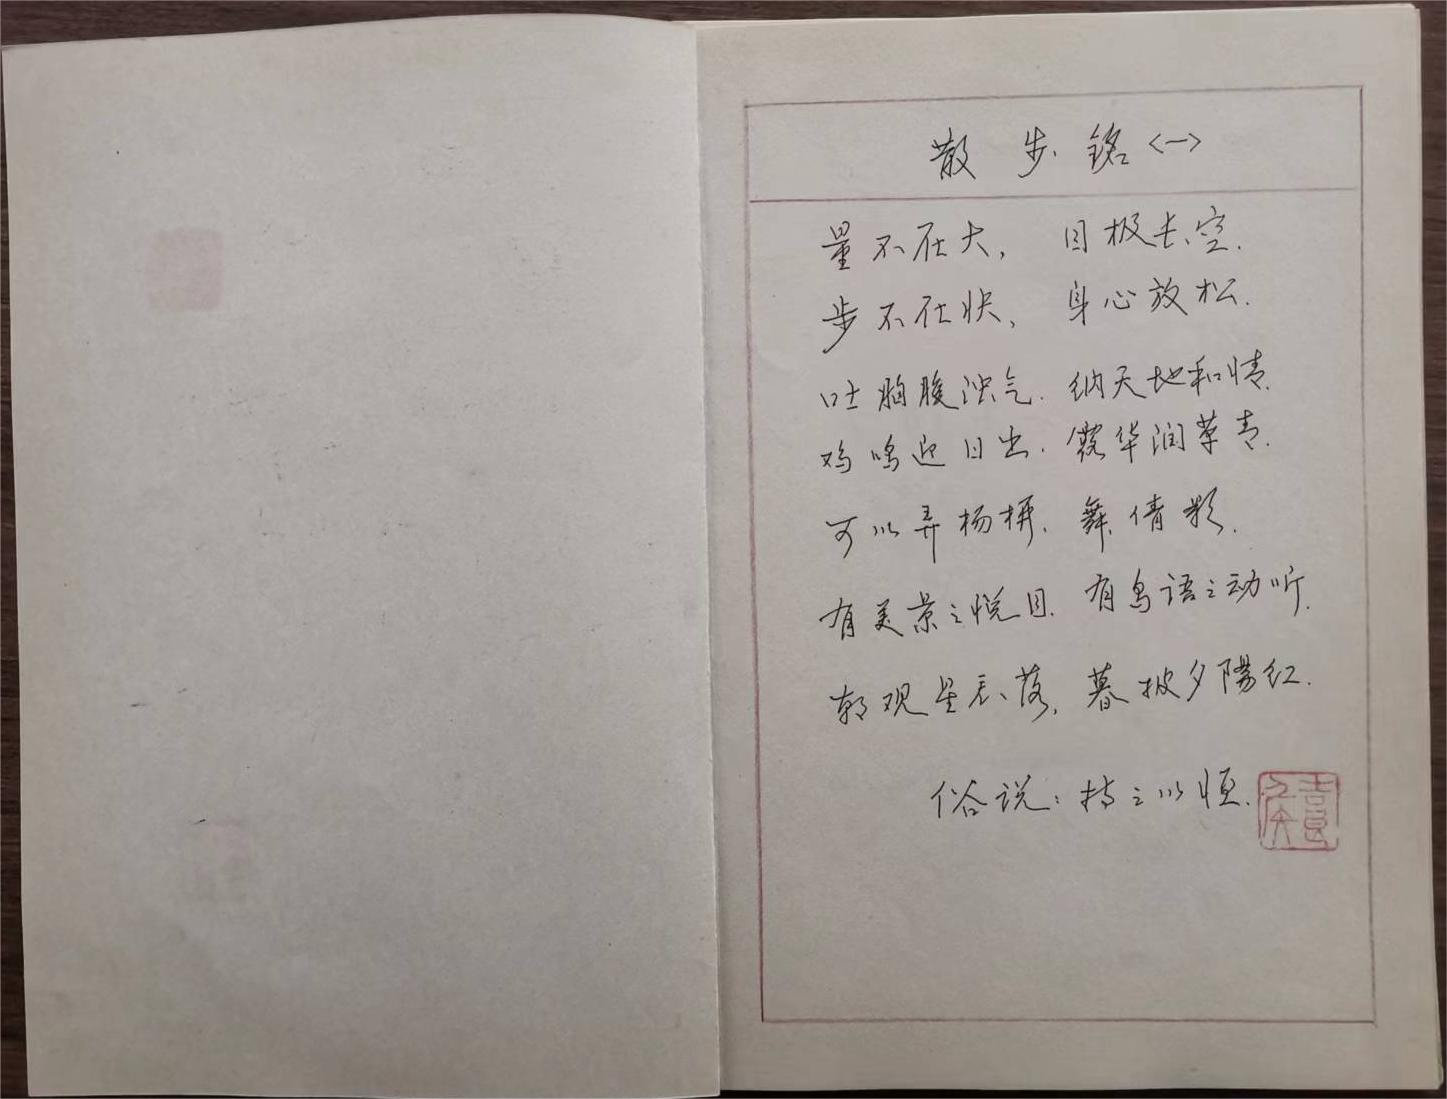 散步铭<一>
量不在大，目极长空.
步不在快，身心放松.
吐胸腹浊气.纳天地和情.
鸡鸣迎日出.露华润草青.
可以弄杨柳.舞倩影.
有美景之悦目.有鸟语之动听.
朝观星辰落，暮披夕陽红.
俗说：持之以恒.